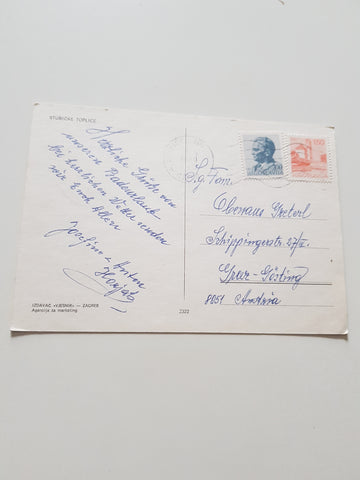 STUBIČKE TOPLICE
Herzliche Grüße von
unserem Badeurlaub
bei herrlichem Wetter senden
wir Euch Allen
Josefine u Anton
IZDAVAČ »VJESNIK« — ZAGREB
Agencija za marketing
2322
1.50
Sg. Fam.
Obersaus Greterl
Schippingerstr. 27/II
Graz-Gösting
8051 Austria